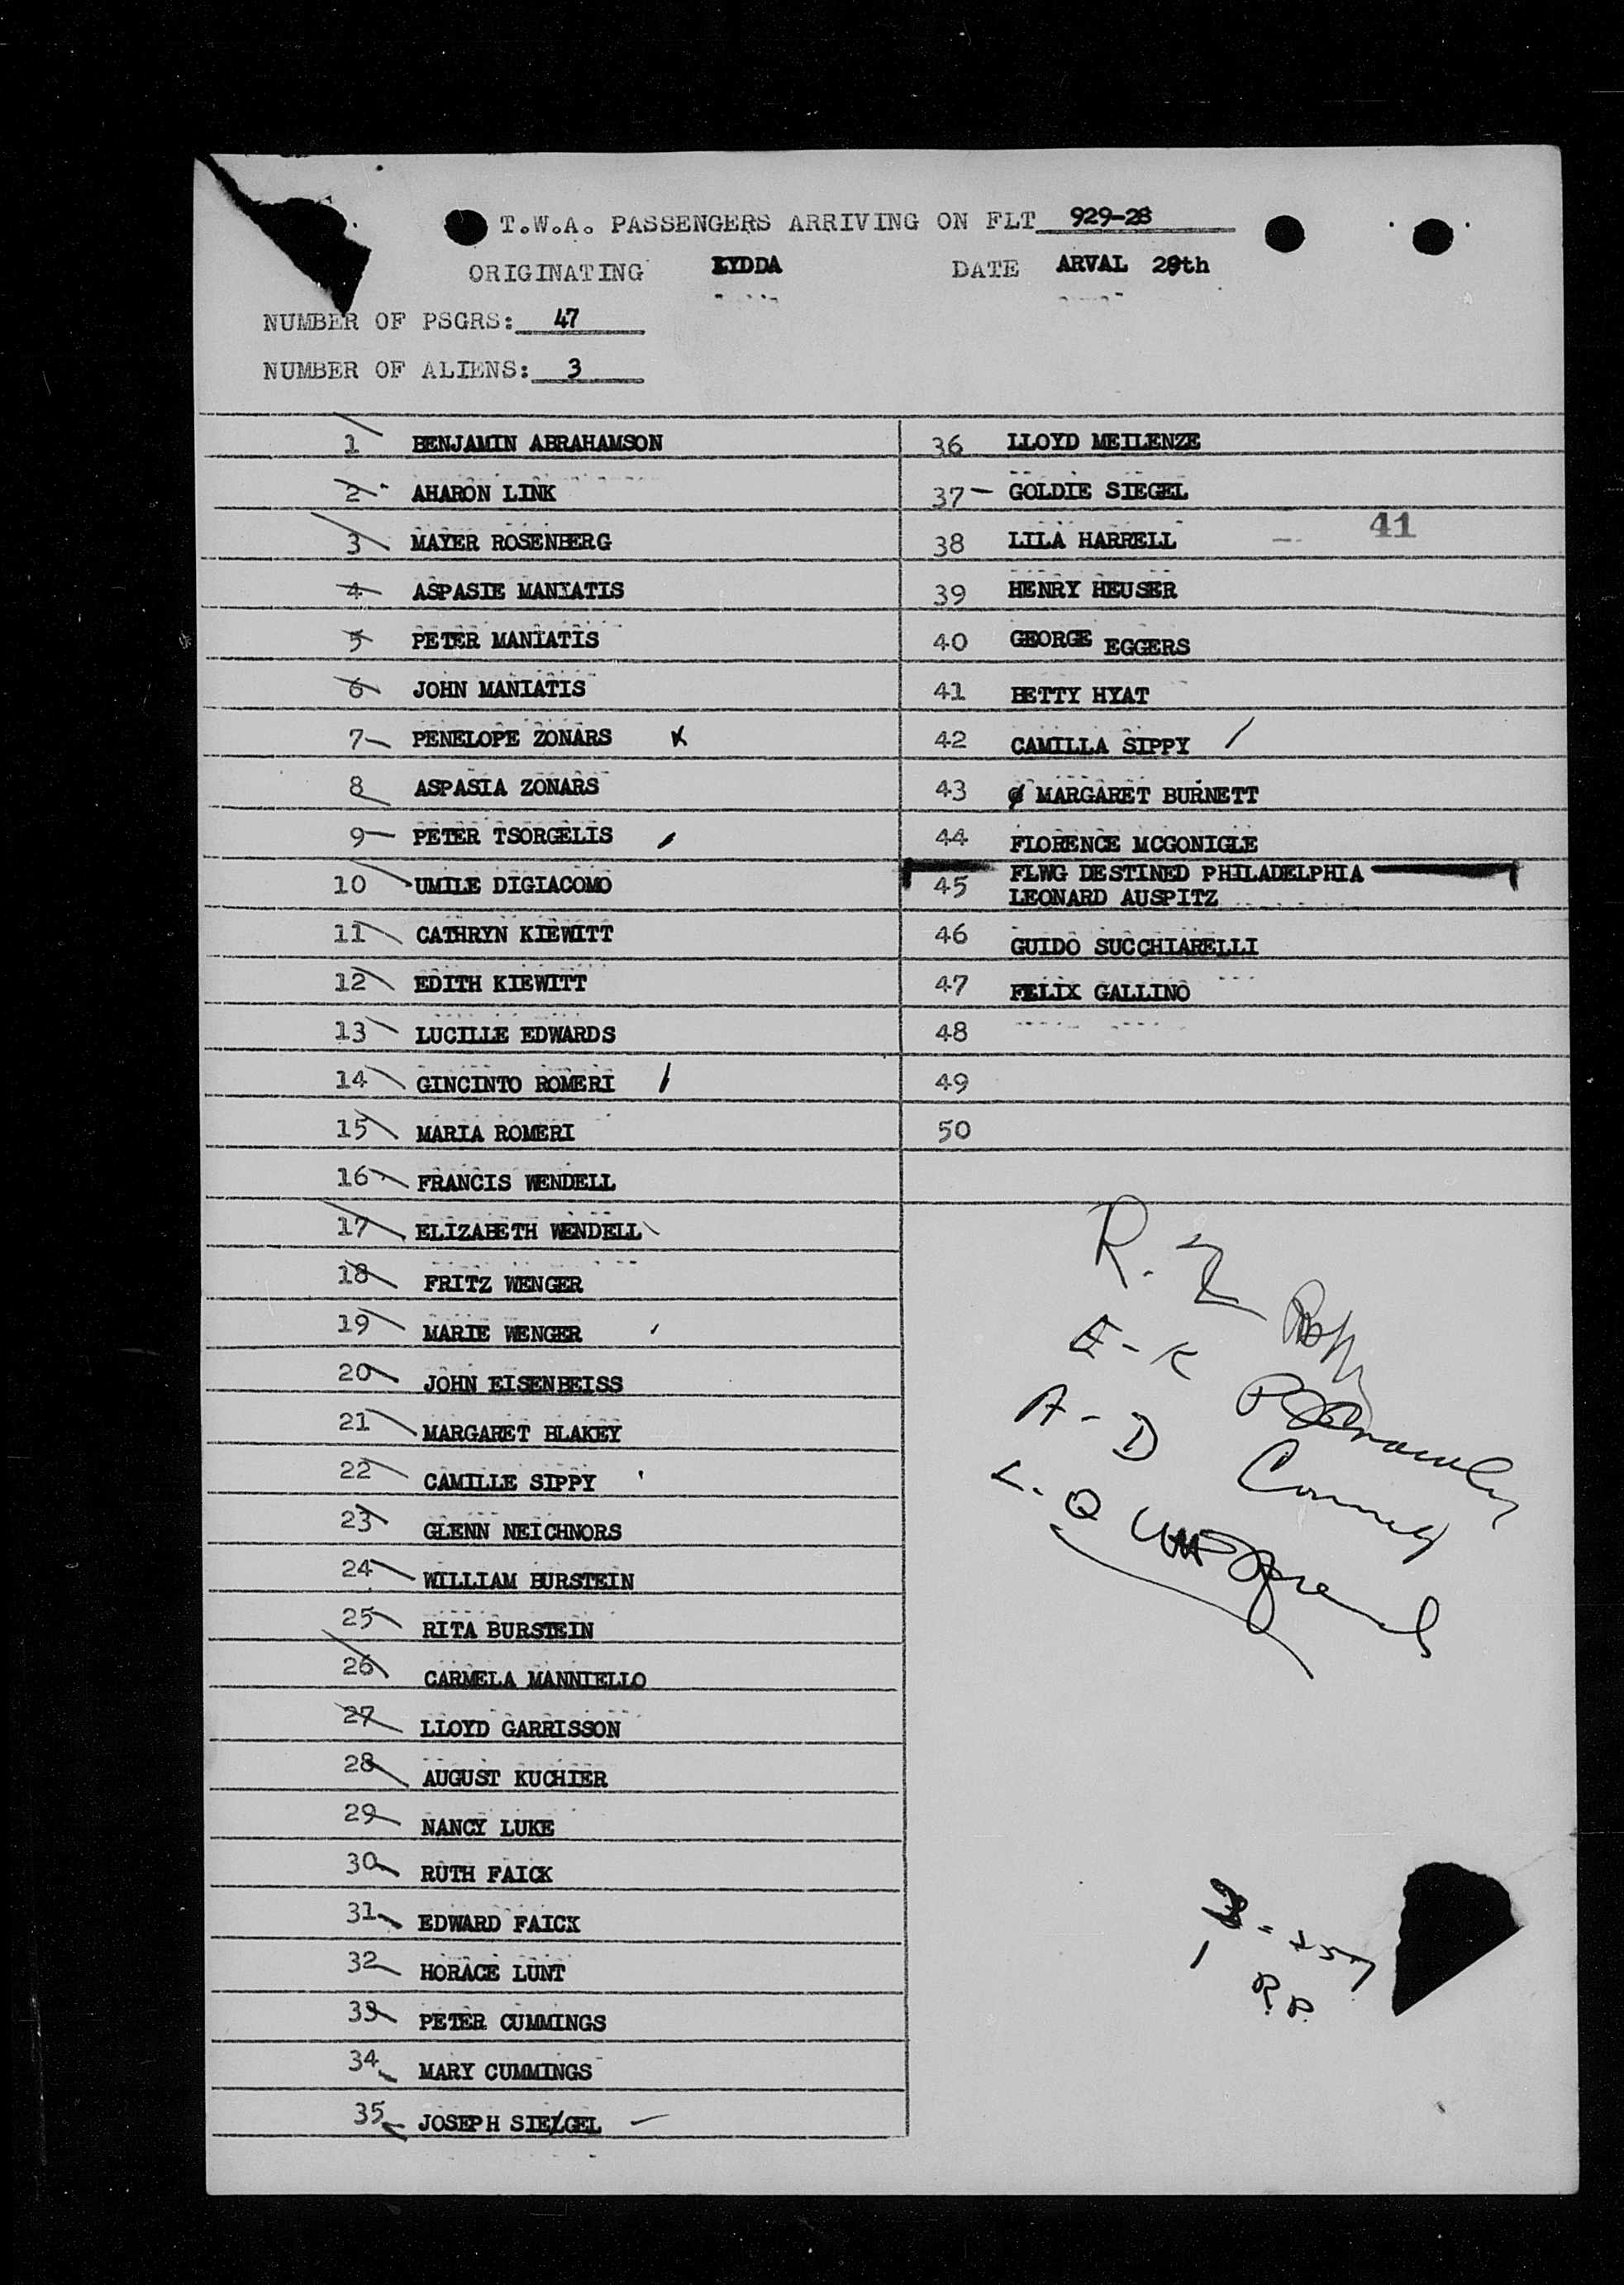 T.W.A. PASSENGERS ARRIVING ON FLT 929-28
ORIGINATING LYDDA DATE ARVAL 29th
NUMBER OF PSGRS: 47
NUMBER OF ALIENS: 3
1 BENJAMIN ABRAHAMSON
2 AHARON LINK
3 MAYER ROSENBERG
4 ASPASIE MANIATIS
5 PETER MANIATIS
6 JOHN MANIATIS
7 PENELOPE ZONARS
8 ASPASIA ZONARS
9 PETER TSORGELIS
10 UMILE DIGIACOMO
11 CATHRYN KIEWITT
12 EDITH KIEWITT
13 LUCILLE EDWARDS
14 GINCINTO ROMERI
15 MARIA ROMERI
16 FRANCIS WENDELL
17 ELIZABETH WENDELL
18 FRITZ WENGER
19 MARIE WENGER
20 JOHN EISENBEISS
21 MARGARET BLAKEY
22 CAMILLE SIPPY
23 GLENN NEICHNORS
24 WILLIAM BURSTEIN
25 RITA BURSTEIN
26 CARMELA MANNIELLO
27 LLOYD GARRISSON
28 AUGUST KUCHIER
29 NANCY LUKE
30 RUTH FAICK
31 EDWARD FAICK
32 HORACE LUNT
33 PETER CUMMINGS
34 MARY CUMMINGS
35 JOSEPH SIEGEL
36 LLOYD MEILENZE
37 GOLDIE SIEGEL
41
38 LILA HARRELL
39 HENRY HEUSER
40 GEORGE EGGERS
41 BETTY HYAT
42 CAMILLA SIPPY
43 MARGARET BURNETT
44 FLORENCE MCGONIGLE
FLWG DESTINED PHILADELPHIA
45 LEONARD AUSPITZ
46 GUIDO SUCCHIARELLI
47 FELIX GALLINO
48
49
50
R. Z
E-K
A-D
L-Q
R.P.